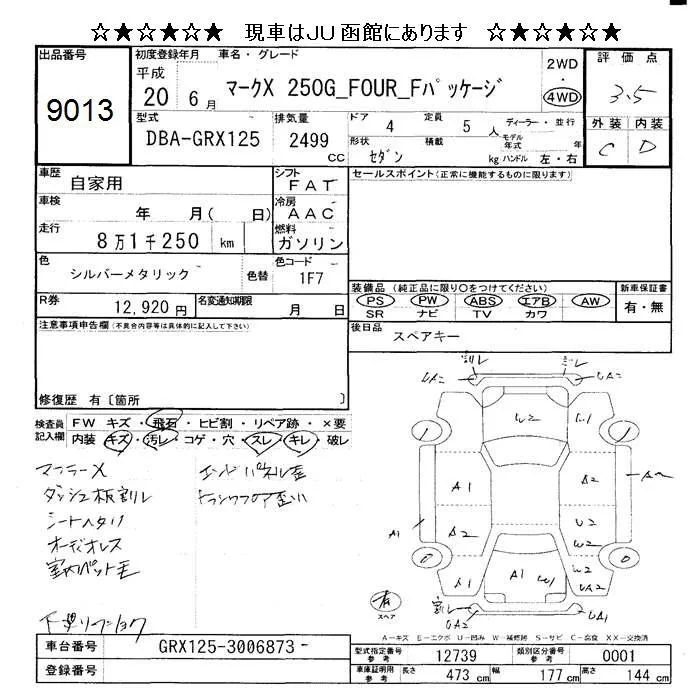 ☆★☆★☆★ 現車はJU函館にあります ☆★☆★☆★
出品番号
9013
初度登録年月
平成
20年 6月
車名・グレード
マークX 250G_FOUR_Fパッケージ
2WD
・
4WD
評価点
3.5
外装 内装
C D
型式
DBA-GRX125
排気量
2499
CC
ドア 4
定員 5人
ディーラー・並行
モデル年式 年
形状 セダン
積載 kg
ハンドル 左・右
車歴
自家用
シフト
FAT
車検
年 月( 日)
冷房
AAC
走行
8万1千250 km
燃料
ガソリン
色
シルバーメタリック
色替
色コード
1F7
R券
12,920円
名変通知期限
月 日
セールスポイント(正常に機能するものに限ります)
装備品 (純正品に限り○をつけてください)
PS PW ABS エアB AW
SR ナビ TV カワ
新車保証書
有・無
後日品
スペアキー
注意事項申告欄(不具合内容等は具体的に記入して下さい)
修復歴 有〔箇所 〕
検査員記入欄
FW キズ・飛石・ヒビ割・リペア跡・×要
内装 キズ・汚レ・コゲ・穴・スレ・キレ・破レ
マフラーX
ダッシュ板割レ
シートヘタリ
オーディオレス
室内ペット毛
エンドパネル歪
トランクフロア歪い
割レ
UA2
W2
W1
A1
A2
A2
U2
W2
A1
A1
W1
W2
UA2
割レ
UA2
UA1
有
スペア
A―キズ E―エクボ U―凹み W―補修跡 S―サビ C―腐食 XX―交換済
車台番号
GRX125-3006873
登録番号
型式指定番号
参考
12739
類別区分番号
参考
0001
車庫証明用
参考
長さ 473 cm
幅 177 cm
高さ 144 cm